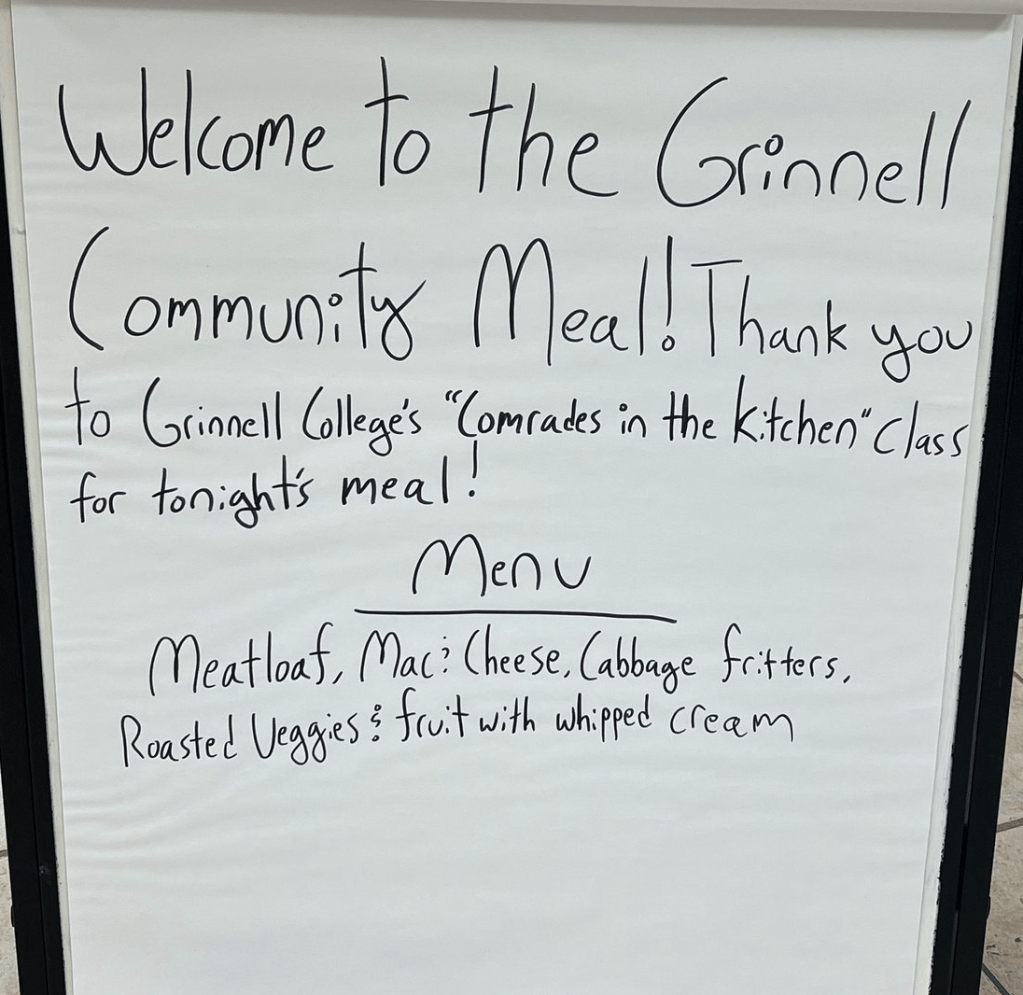 Welcome to the Grinnell
Community Meal! Thank you
to Grinnell College's "Comrades in the Kitchen" Class
for tonight's meal!
Menu
Meatloaf, Mac & Cheese, Cabbage fritters,
Roasted Veggies & fruit with whipped cream